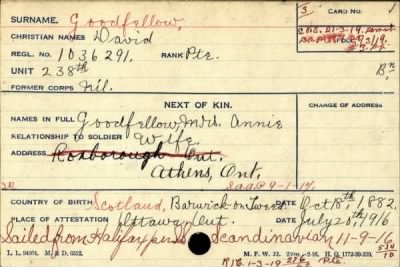 SURNAME. Goodfellow,
CARD NO.
3
CHRISTIAN NAMES David
REGL. NO. 1036291. RANK Pte.
UNIT 238th Bn.
FORMER CORPS Nil.
NEXT OF KIN.
CHANGE OF ADDRESS
NAMES IN FULL Goodfellow, Mrs. Annie
RELATIONSHIP TO SOLDIER Wife
ADDRESS Roxborough Ont.
Athens, Ont.
COUNTRY OF BIRTH Scotland, Barwick on Tweed DATE Oct 18th, 1882.
PLACE OF ATTESTATION Ottawa, Ont. DATE July 20th, 1916
Sailed from Halifax per SS Scandinavian 11-9-16
L. L. 94051. M. & D. 6512. M. F. W. 22.
R.I.E. 1-3-19 Pte.